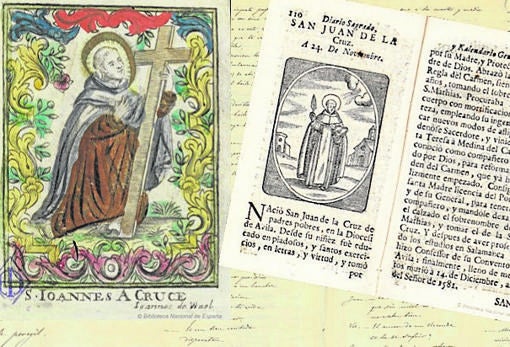 S. IOANNES A CRUCE
Ioannes de Wael
© Biblioteca Nacional de España
110 Diario Sagrado,
SAN JUAN DE LA
Cruz.
A 24. De Noviembre.
NAciò San Juan de la Cruz de
padres pobres, en la Diocesi
de Avila. Desde su niñez fue edu
cado en piadosos, y santos exerci-
cios, en letras, y virtud, y tomò
por
y Kalendario Gen
por su Madre, y Protec
de Dios. Abrazò la
Regla del Carmen, siend
años, tomando el sobre
S. Mathias. Procuraba
cuerpo con mortificacion
treza, empleando su ingen
car nuevos modos de aflig
denòse Sacerdote, y vinien
ta Teresa à Medina del Ca
conociò como compañero
do por Dios, para reformar
den del Carmen, que yà h
lizmente empezado. Consig
Santa Madre licencia del P
y de su General, para tener
compañero, y mandòle dexar
el calzado el sobrenombre d
Mathias, y tomar el de la
Cruz. Y despues de aver profe
do los estudios de Salamanca
hizo Confessor de su Convento
Avila: finalmente, lleno de me
tos muriò à 14. de Diciembre, a
del Señor de 1581.
SAN
© Biblioteca Nacional de E